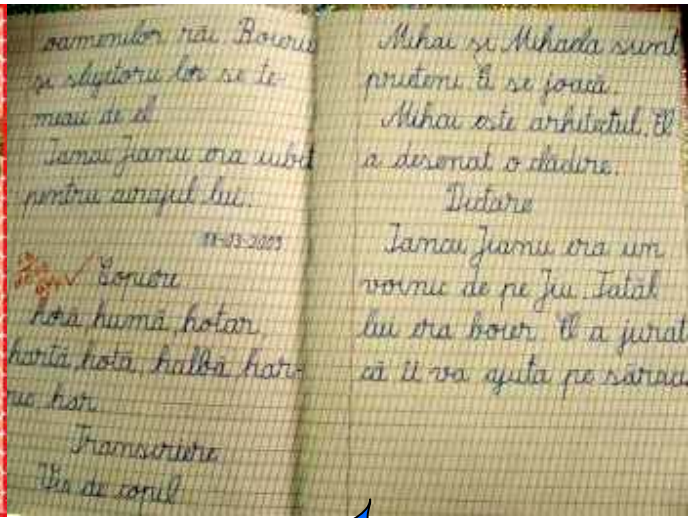 oamenilor răi. Boierii
și slujitorii lor se te-
meau de el.
Iancu Jianu era iubit
pentru curajul lui.
Copiere
horă humă, hotar
hartă, hotă, halbă har-
nic har
Transcriere
Vis de copil
Mihai și Mihaela sunt
prieteni. Ei se joacă.
Mihai este arhitectul. El
a desenat o clădire.
Dictare
Iancu Jianu era un
voinic de pe Jiu. Tatăl
lui era boier. El a jurat
că îi va ajuta pe săraci